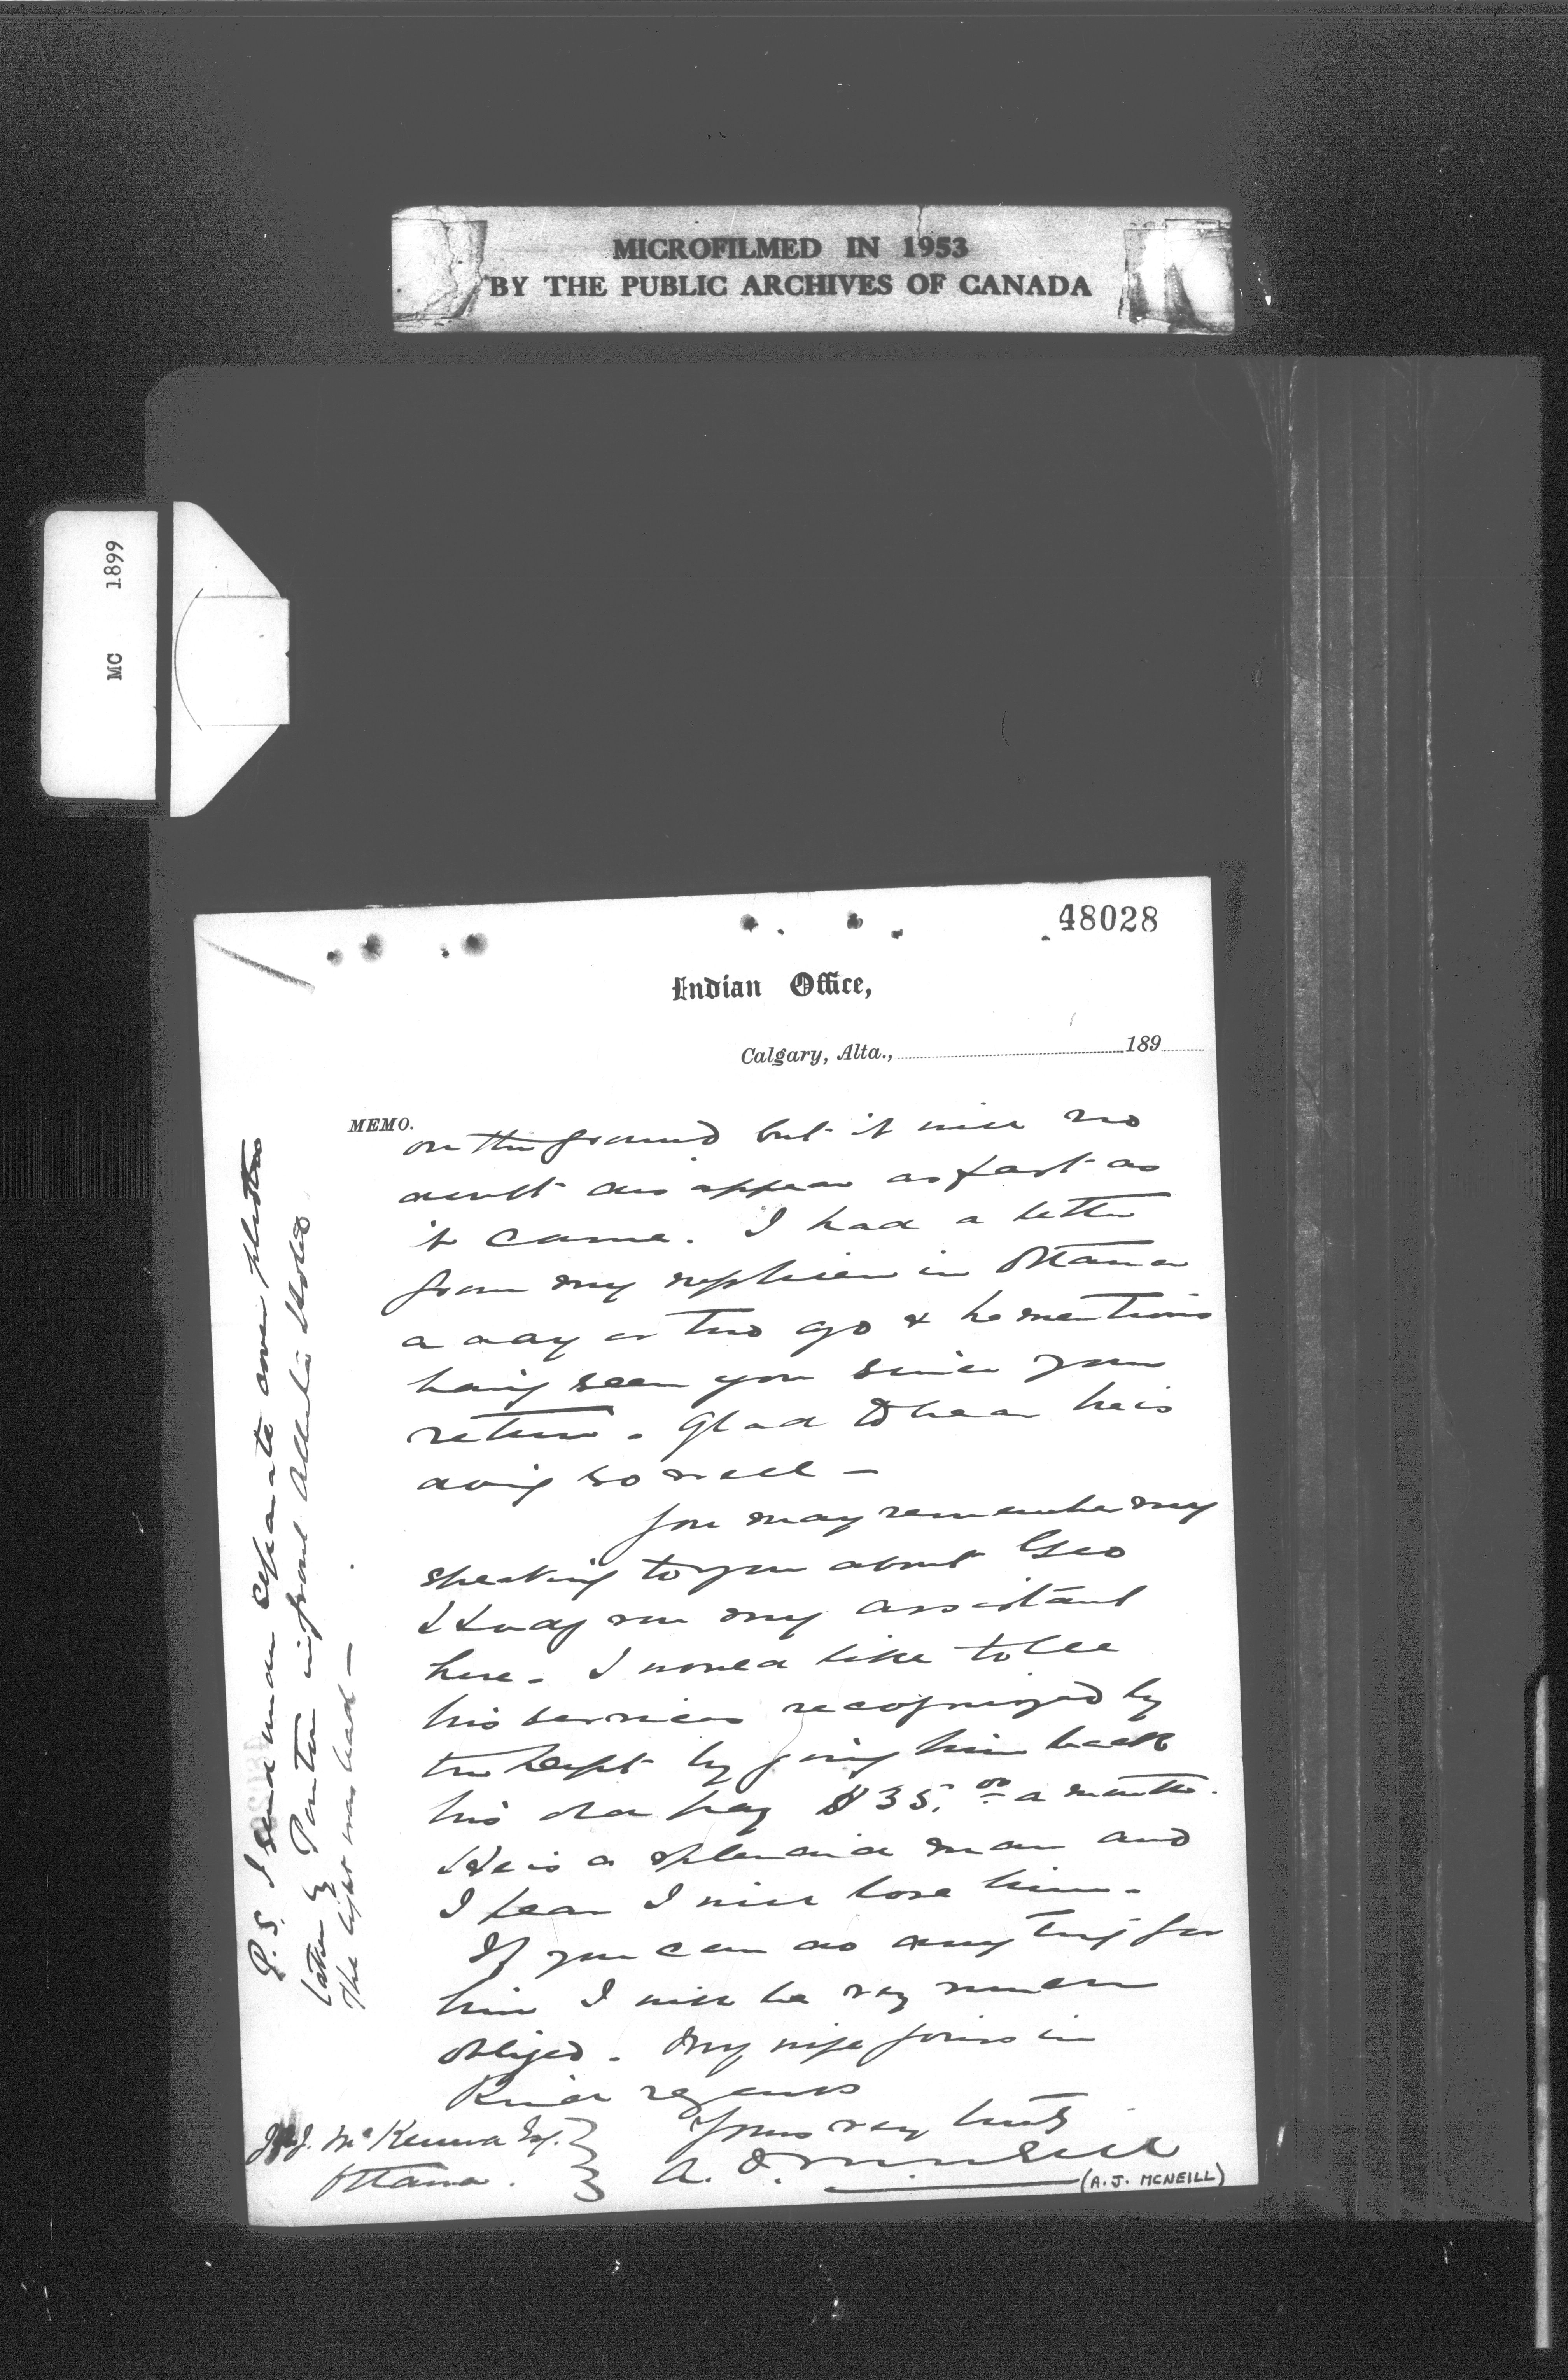 MICROFILMED IN 1953
BY THE PUBLIC ARCHIVES OF CANADA
MC 1899
48028
Indian Office,
Calgary, Alta., 189
MEMO.
on the ground but it will no
doubt disappear as fast as
it came. I had a letter
from my nephew in Ottawa
a day or two ago & he mentions
having seen you since your
return. Glad to hear he is
doing so well —
You may remember my
speaking to you about Geo
my assistant
here. I would like to see
his services recognized by
the Dept by giving him back
his old pay $35.00 a month.
He is a splendid man and
I fear I will lose him.
If you can do any thing for
him I will be very much
obliged. My wife joins in
kind regards
Yours very truly
A. J. McNeill
(A. J. MCNEILL)
J. A. J. McKenna Esq.
Ottawa.
P.S. I send under separate cover photos
taken by Panton in front Alberta Hotel
The light was bad —